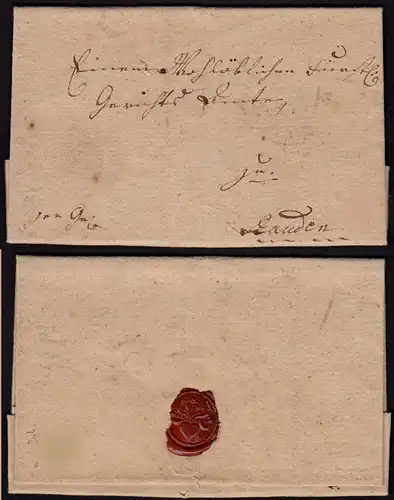 Einem Wohlöblichen Fürstl:
Gerichts Amte,
zu
Rauden